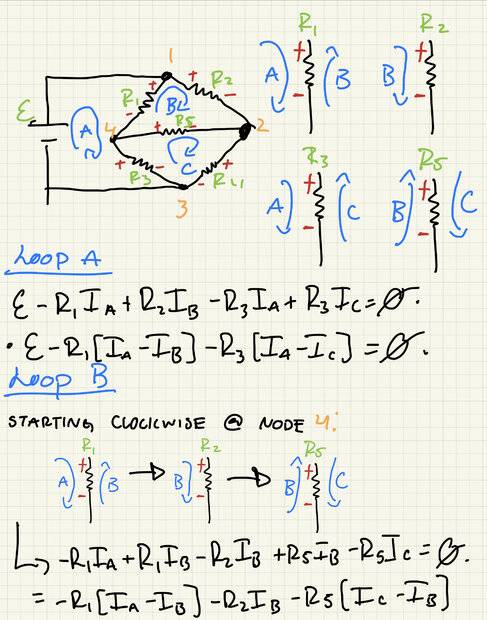 1
R1 R2
ε A R1 B R5 2
4
R3 C R4
3
+ A B -
+ B -
R3 R5
+ A C -
+ B C -
Loop A
ε - R1 IA + R2 IB - R3 IA + R3 IC = ∅.
• ε - R1 [IA - IB] - R3 [IA - IC] = ∅.
Loop B
STARTING CLOCKWISE @ NODE 4:
R1 R2 R5
A + - B → B + - → B + - C
↳ -R1 IA + R1 IB - R2 IB + R5 IB - R5 IC = ∅.
= -R1 [IA - IB] - R2 IB - R5 [IC - IB]